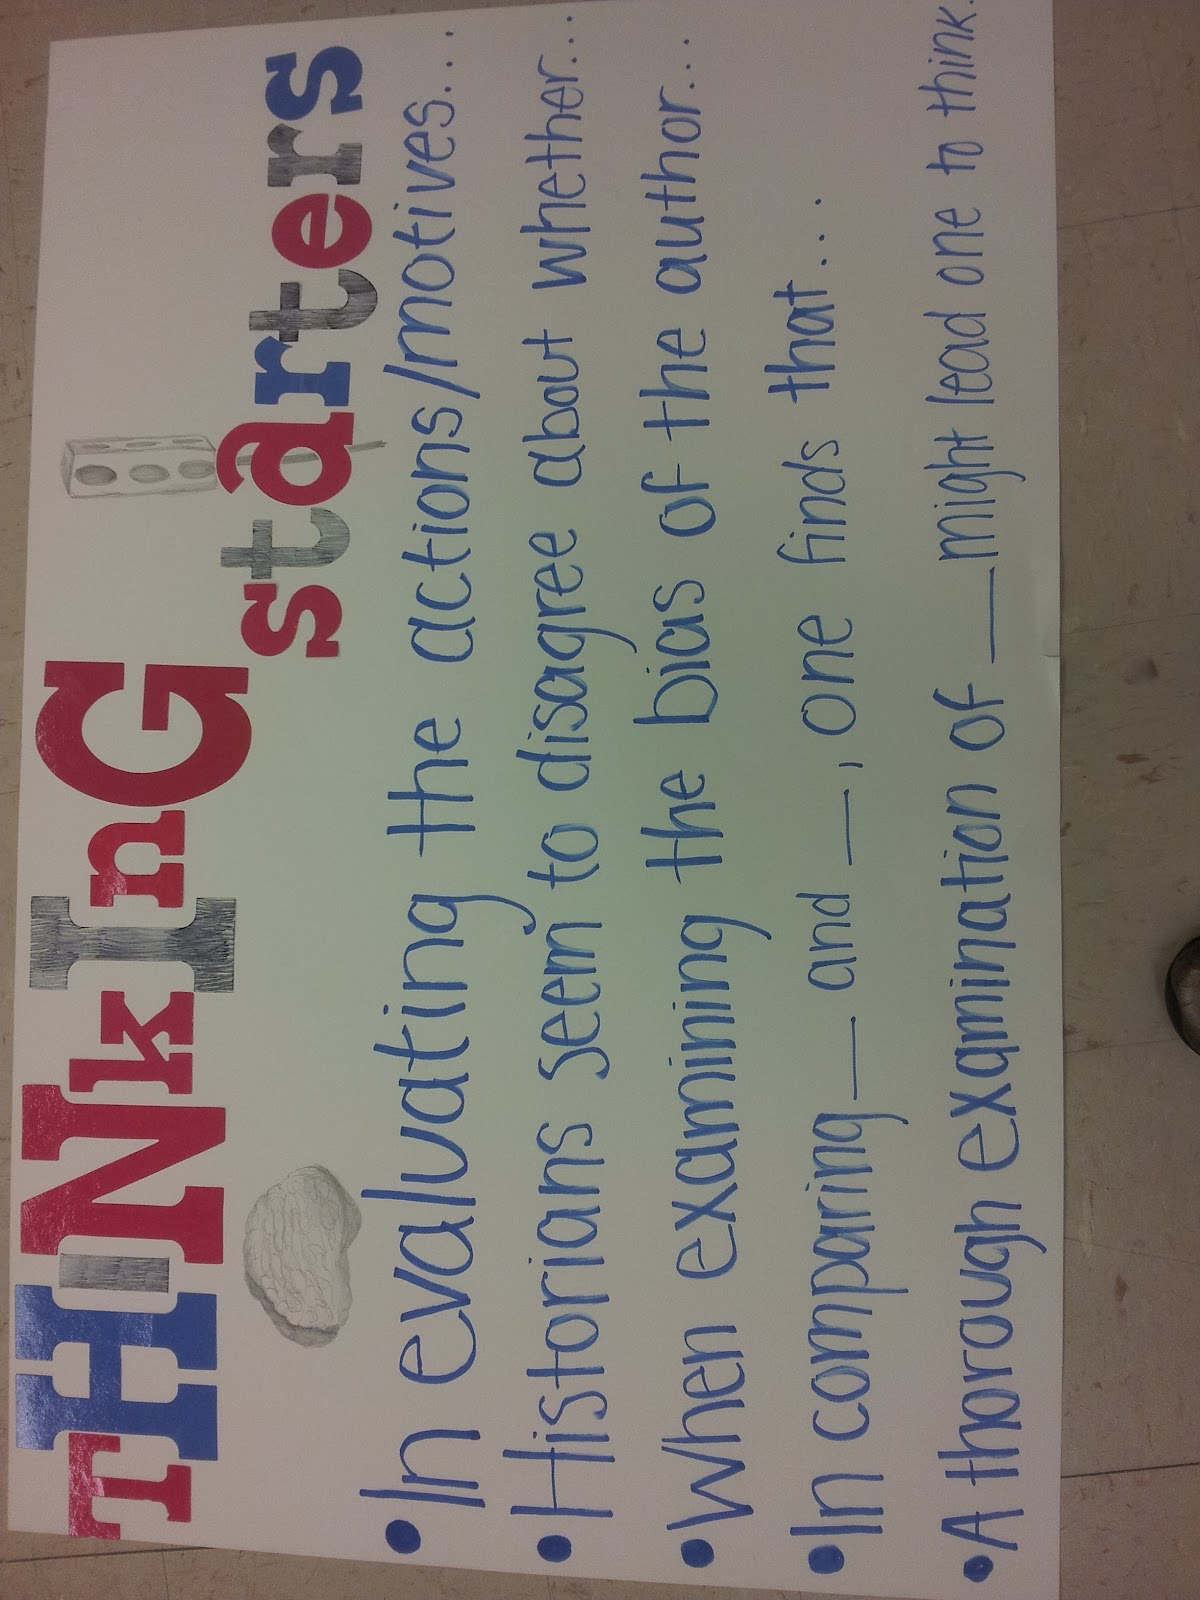 THiNkInG
starters
• In evaluating the actions/motives...
• Historians seem to disagree about whether...
• When examining the bias of the author...
• In comparing ___ and ___, one finds that....
• A thorough examination of ___ might lead one to think.